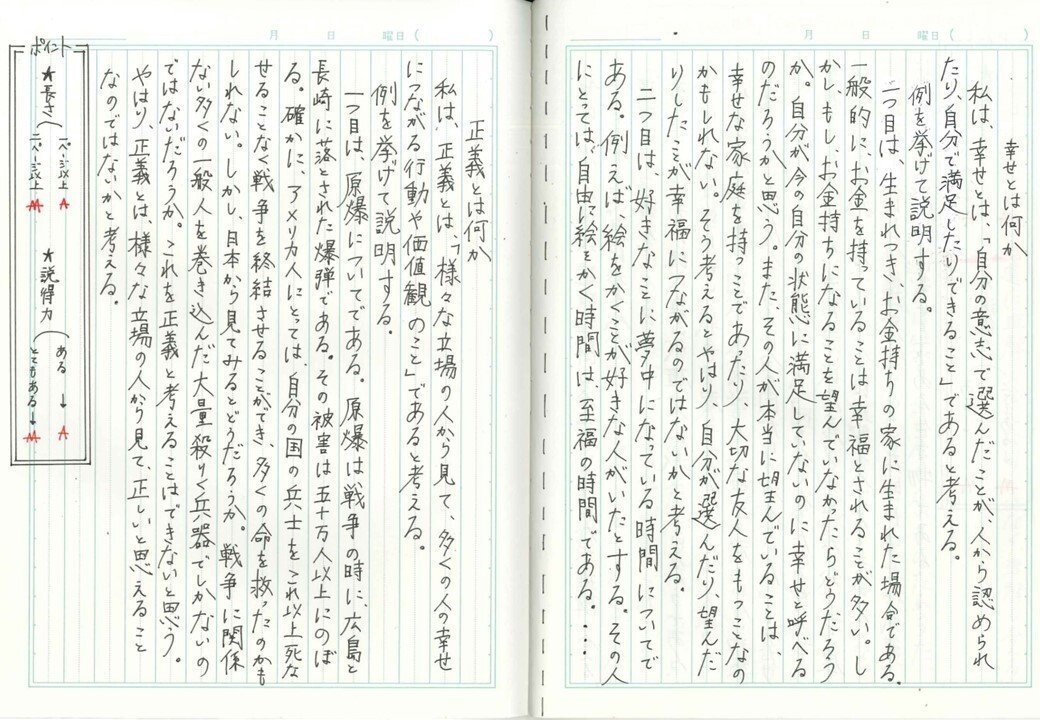 月　日　曜日（　）
幸せとは何か
私は、幸せとは、「自分の意志で選んだことが、人から認められ
たり、自分で満足したりできること」であると考える。
例を挙げて説明する。
一つ目は、生まれつき、お金持ちの家に生まれた場合である。
一般的に、お金を持っていることは幸福とされることが多い。し
かし、もし、お金持ちになることを望んでいなかったらどうだろう
か。自分が今の自分の状態に満足していないのに幸せと呼べる
のだろうかと思う。また、その人が本当に望んでいることは、
幸せな家庭を持つことであったり、大切な友人をもつことなの
かもしれない。そう考えるとやはり、自分が選んだり、望んだ
りしたことが幸福につながるのではないかと考える。
二つ目は、好きなことに夢中になっている時間についてで
ある。例えば、絵をかくことが好きな人がいたとする。その人
にとっては、自由に絵をかく時間は、至福の時間である。・・・
月　日　曜日（　）
正義とは何か
私は、正義とは、「様々な立場の人から見て、多くの人の幸せ
につながる行動や価値観のこと」であると考える。
例を挙げて説明する。
一つ目は、原爆についてである。原爆は戦争の時に、広島と
長崎に落とされた爆弾である。その被害は五十万人以上にのぼ
る。確かに、アメリカ人にとっては、自分の国の兵士をこれ以上死な
せることなく戦争を終結させることができ、多くの命を救ったのかも
しれない。しかし、日本から見てみるとどうだろうか。戦争に関係
ない多くの一般人を巻き込んだ大量殺りく兵器でしかないの
ではないだろうか。これを正義と考えることはできないと思う。
やはり、正義とは、様々な立場の人から見て、正しいと思えること
なのではないかと考える。
ポイント
★長さ
一ページ以上 A
二ページ以上 AA
★説得力
ある → A
とてもある → AA